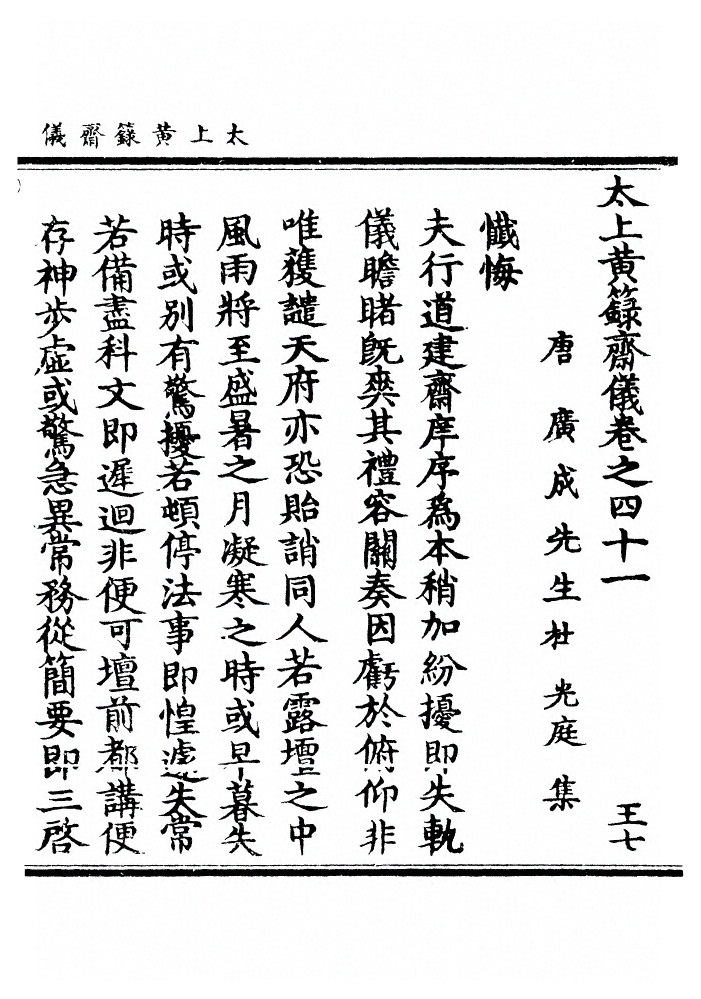 太上黄籙齋儀
太上黄籙齋儀卷之四十一
王七
唐廣成先生杜光庭集
懺悔
夫行道建齋庠序為本稍加紛擾即失軌
儀瞻睹旣爽其禮容關奏因虧於俯仰非
唯蒦譴天府亦恐貽誚同人若露壇之中
風雨將至盛暑之月凝寒之時或早暮失
時或别有驚擾若頓停法事即惶遽失常
若備盡科文即遲迴非便可壇前都講便
存神步虛或驚急異常務從簡要即三啓